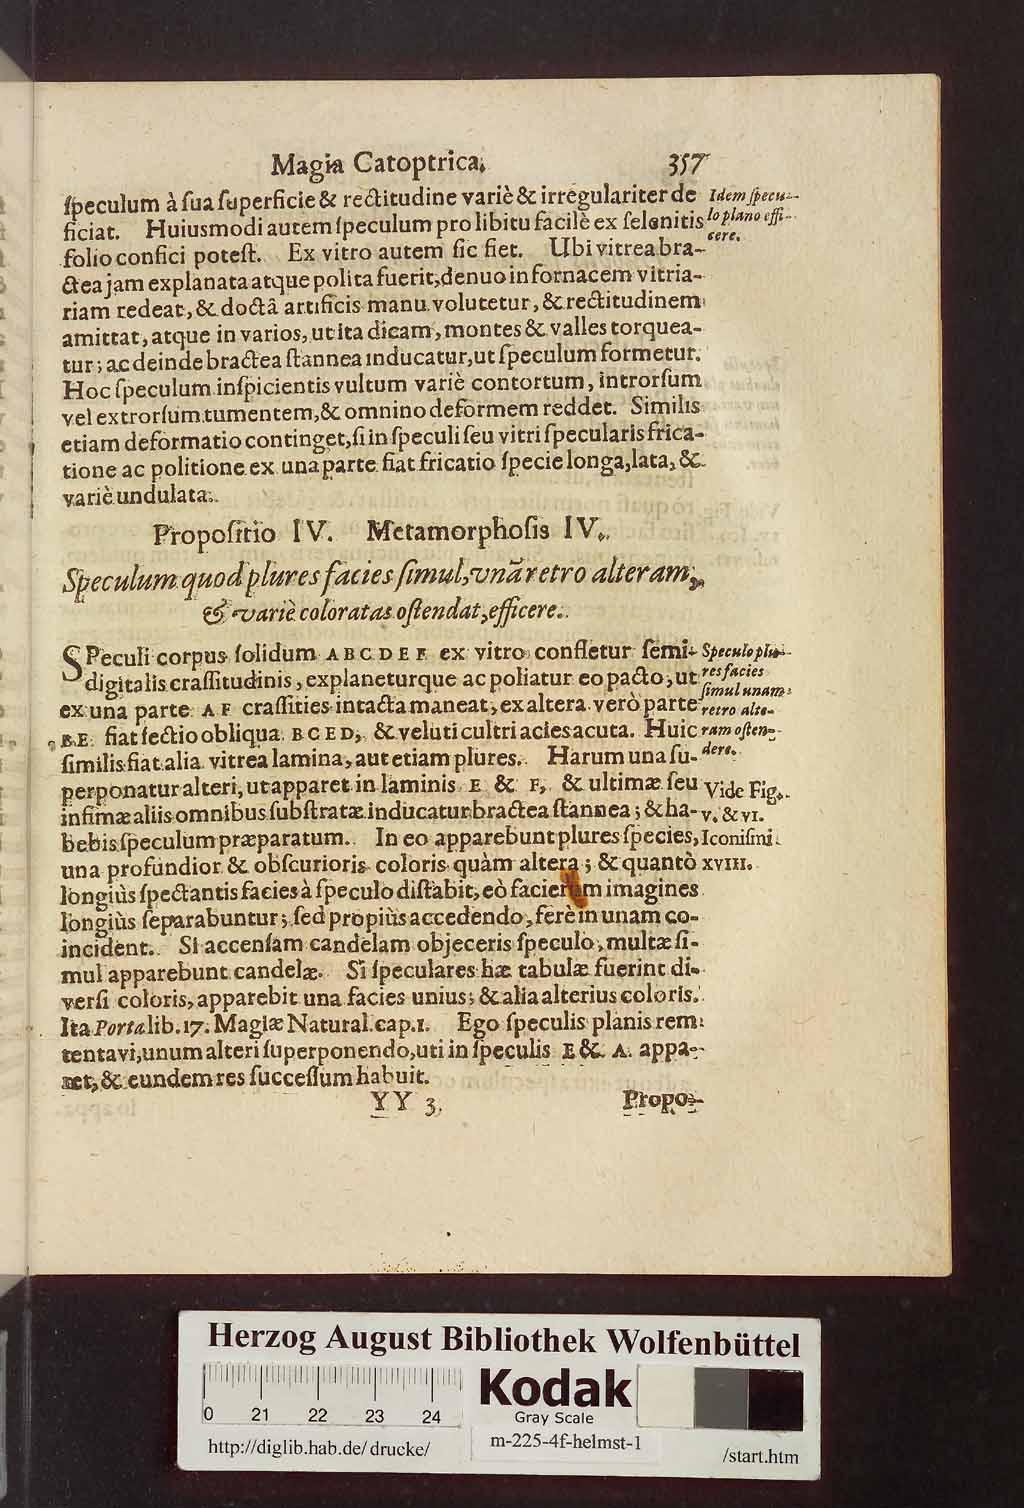 Magia Catoptrica. 357
ſpeculum à ſua ſuperficie & rectitudine variè & irregulariter de
ficiat. Huiusmodi autem ſpeculum pro libitu facilè ex ſelenitis
folio confici poteſt. Ex vitro autem ſic fiet. Ubi vitrea bra-
ctea jam explanata atque polita fuerit, denuo in fornacem vitria-
riam redeat, & doctâ artificis manu volutetur, & rectitudinem
amittat, atque in varios, ut ita dicam, montes & valles torquea-
tur; ac deinde bractea ſtannea inducatur, ut ſpeculum formetur.
Hoc ſpeculum inſpicientis vultum variè contortum, introrſum
vel extrorſum tumentem, & omnino deformem reddet. Similis
etiam deformatio continget, ſi in ſpeculi ſeu vitri ſpecularis frica-
tione ac politione ex una parte fiat fricatio ſpecie longa, lata, &
variè undulata.
Idem ſpecu-
lo plano effi-
cere.
Propoſitio IV. Metamorphoſis IV.
Speculum quod plures facies ſimul, unã retro alteram,
& variè coloratas oſtendat, efficere.
SPeculi corpus ſolidum A B C D E F ex vitro confletur ſemi-
digitalis craſſitudinis, explaneturque ac poliatur eo pacto, ut
ex una parte A F craſſities intacta maneat, ex altera verò parte
B E fiat ſectio obliqua B C E D, & veluti cultri acies acuta. Huic
ſimilis fiat alia vitrea lamina, aut etiam plures. Harum una ſu-
perponatur alteri, ut apparet in laminis E & F, & ultimæ ſeu
infimæ aliis omnibus ſubſtratæ inducatur bractea ſtannea; & ha-
bebis ſpeculum præparatum. In eo apparebunt plures ſpecies,
una profundior & obſcurioris coloris quàm altera; & quantò
longiùs ſpectantis facies à ſpeculo diſtabit, eò facierum imagines
longiùs ſeparabuntur; ſed propiùs accedendo, ferè in unam co-
incident. Si accenſam candelam objeceris ſpeculo, multæ ſi-
mul apparebunt candelæ. Si ſpeculares hæ tabulæ fuerint di-
verſi coloris, apparebit una facies unius; & alia alterius coloris.
Ita Porta lib. 17. Magiæ Natural. cap. 1. Ego ſpeculis planis rem
tentavi, unum alteri ſuperponendo, uti in ſpeculis E & A appa-
ret, & eundem res ſucceſſum habuit.
Speculo plu-
res facies
ſimul unam
retro alte-
ram oſten-
dere.
Vide Fig.
V. & VI.
Iconiſmi
XVIII.
YY 3 Propo-
Herzog August Bibliothek Wolfenbüttel
0 21 22 23 24
Kodak
Gray Scale
http://diglib.hab.de/drucke/ m-225-4f-helmst-1 /start.htm